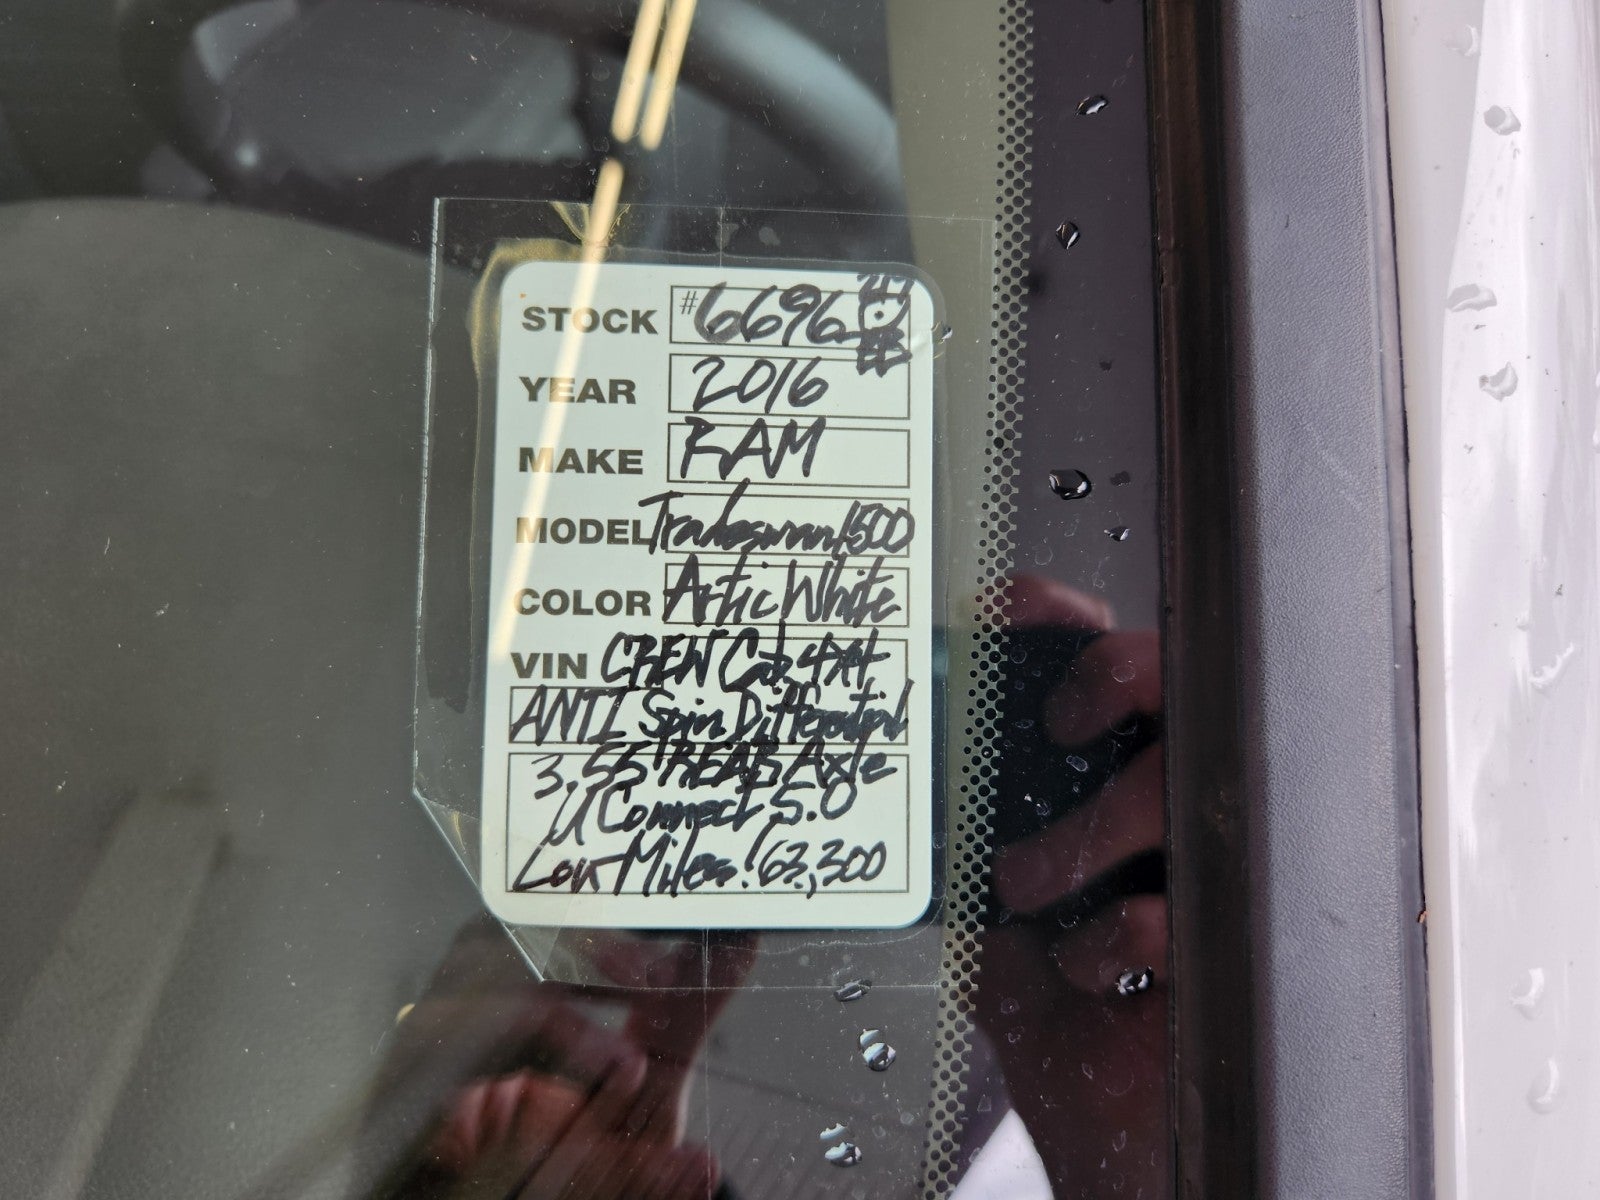 STOCK #6696
YEAR 2016
MAKE RAM
MODEL Tradesman 1500
COLOR Artic White
VIN CREW Cab 4x4
ANTI Spin Differential
3.55 REAR Axle
U Connect 5.0
Low Miles! 63,300